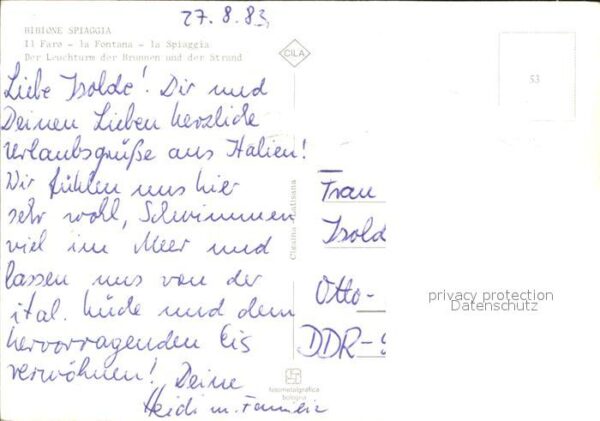 27.8.83,
BIBIONE SPIAGGIA
Il Faro - la Fontana - la Spiaggia
Der Leuchturm der Brunnen und der Strand
CILA
53
Liebe Isolde! Dir und
Deinen Lieben herzliche
Urlaubsgrüße aus Italien!
Wir fühlen uns hier
sehr wohl, Schwimmen
viel im Meer und
lassen uns von der
ital. Küche und dem
hervorragenden Eis
verwöhnen! Deine
Heidi m. Familie
Latisana
Frau
Isold
Otto-
DDR-9
privacy protection
Datenschutz
fotometalgrafica
bologna